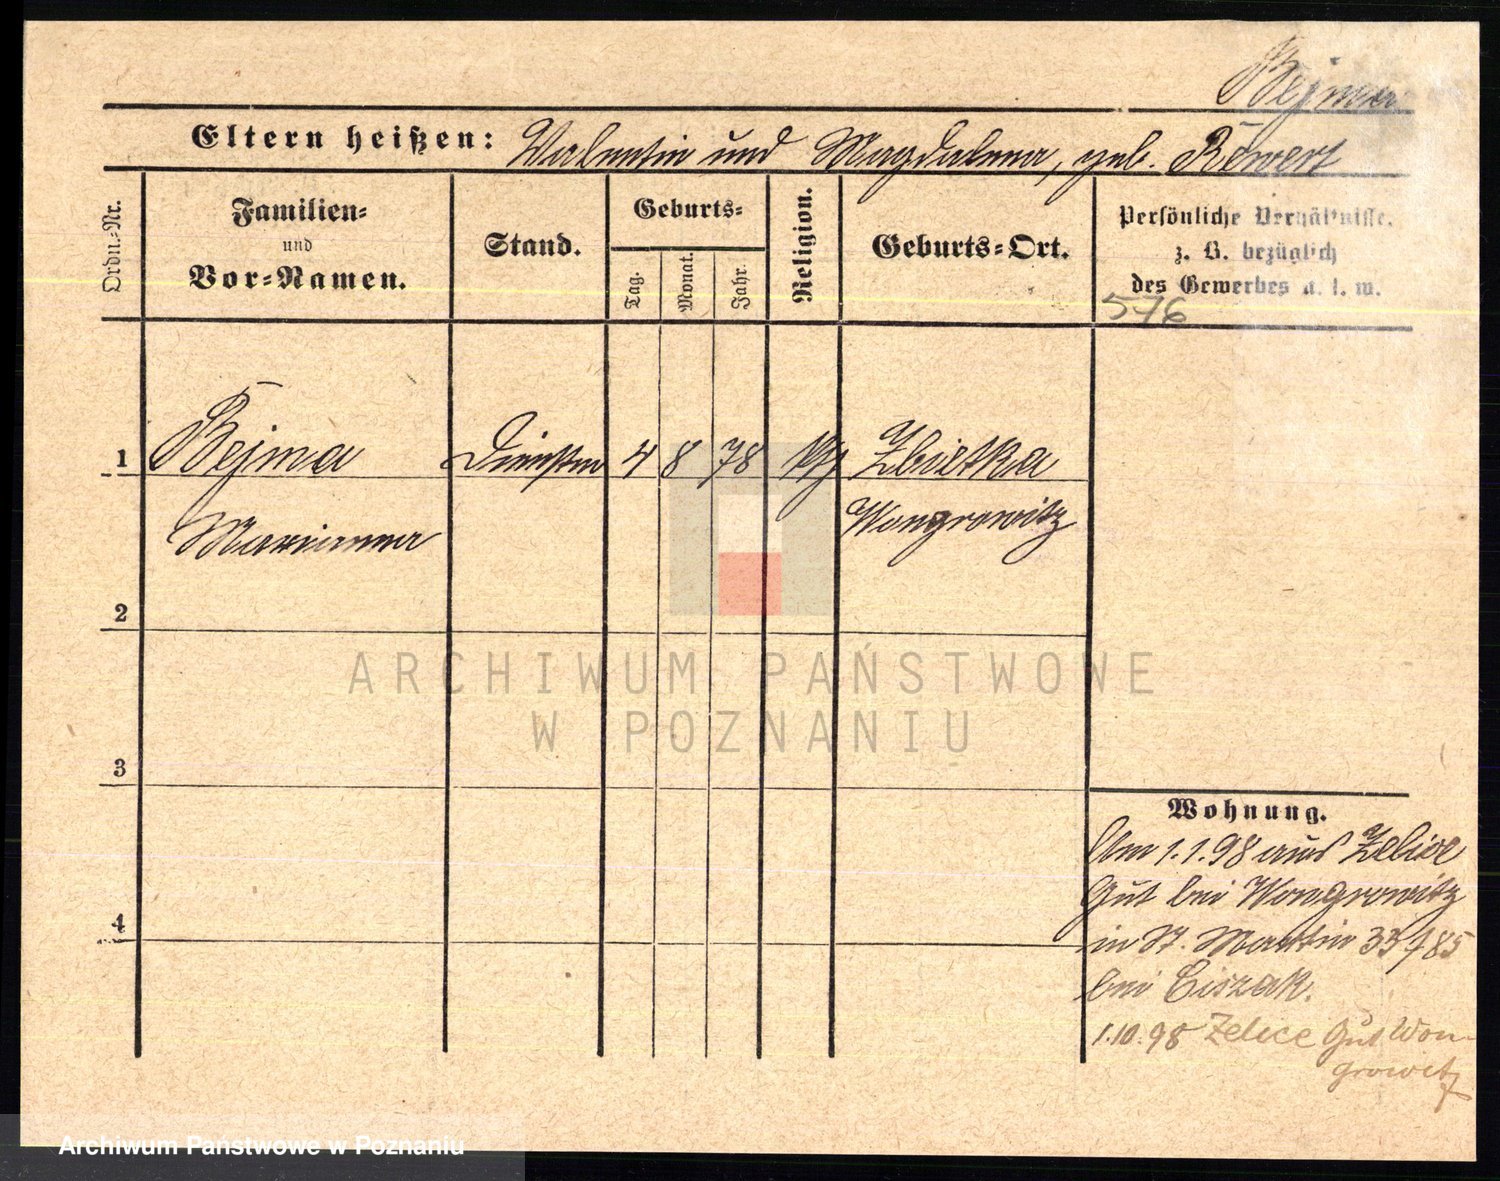 Bejma
Eltern heißen: Valentin und Magdalena, geb. Bewert
Ordn.-Nr.
Familien-
und
Vor-Namen.
Stand.
Geburts-
Tag.
Monat.
Jahr.
Religion.
Geburts-Ort.
Persönliche Verhältnisse.
z. B. bezüglich
des Gewerbes u. s. w.
576
1 Bejma 4 8 78 Zbietka
Marianna Wongrowitz
2
3
4
Wohnung.
Am 1.1.98 aus Zelice
Gut bei Wongrowitz
in St. Martin 33/85
bei Ciszak.
1.10.98 Zelice Gut Won-
growitz
ARCHIWUM PAŃSTWOWE
W POZNANIU
Archiwum Państwowe w Poznaniu